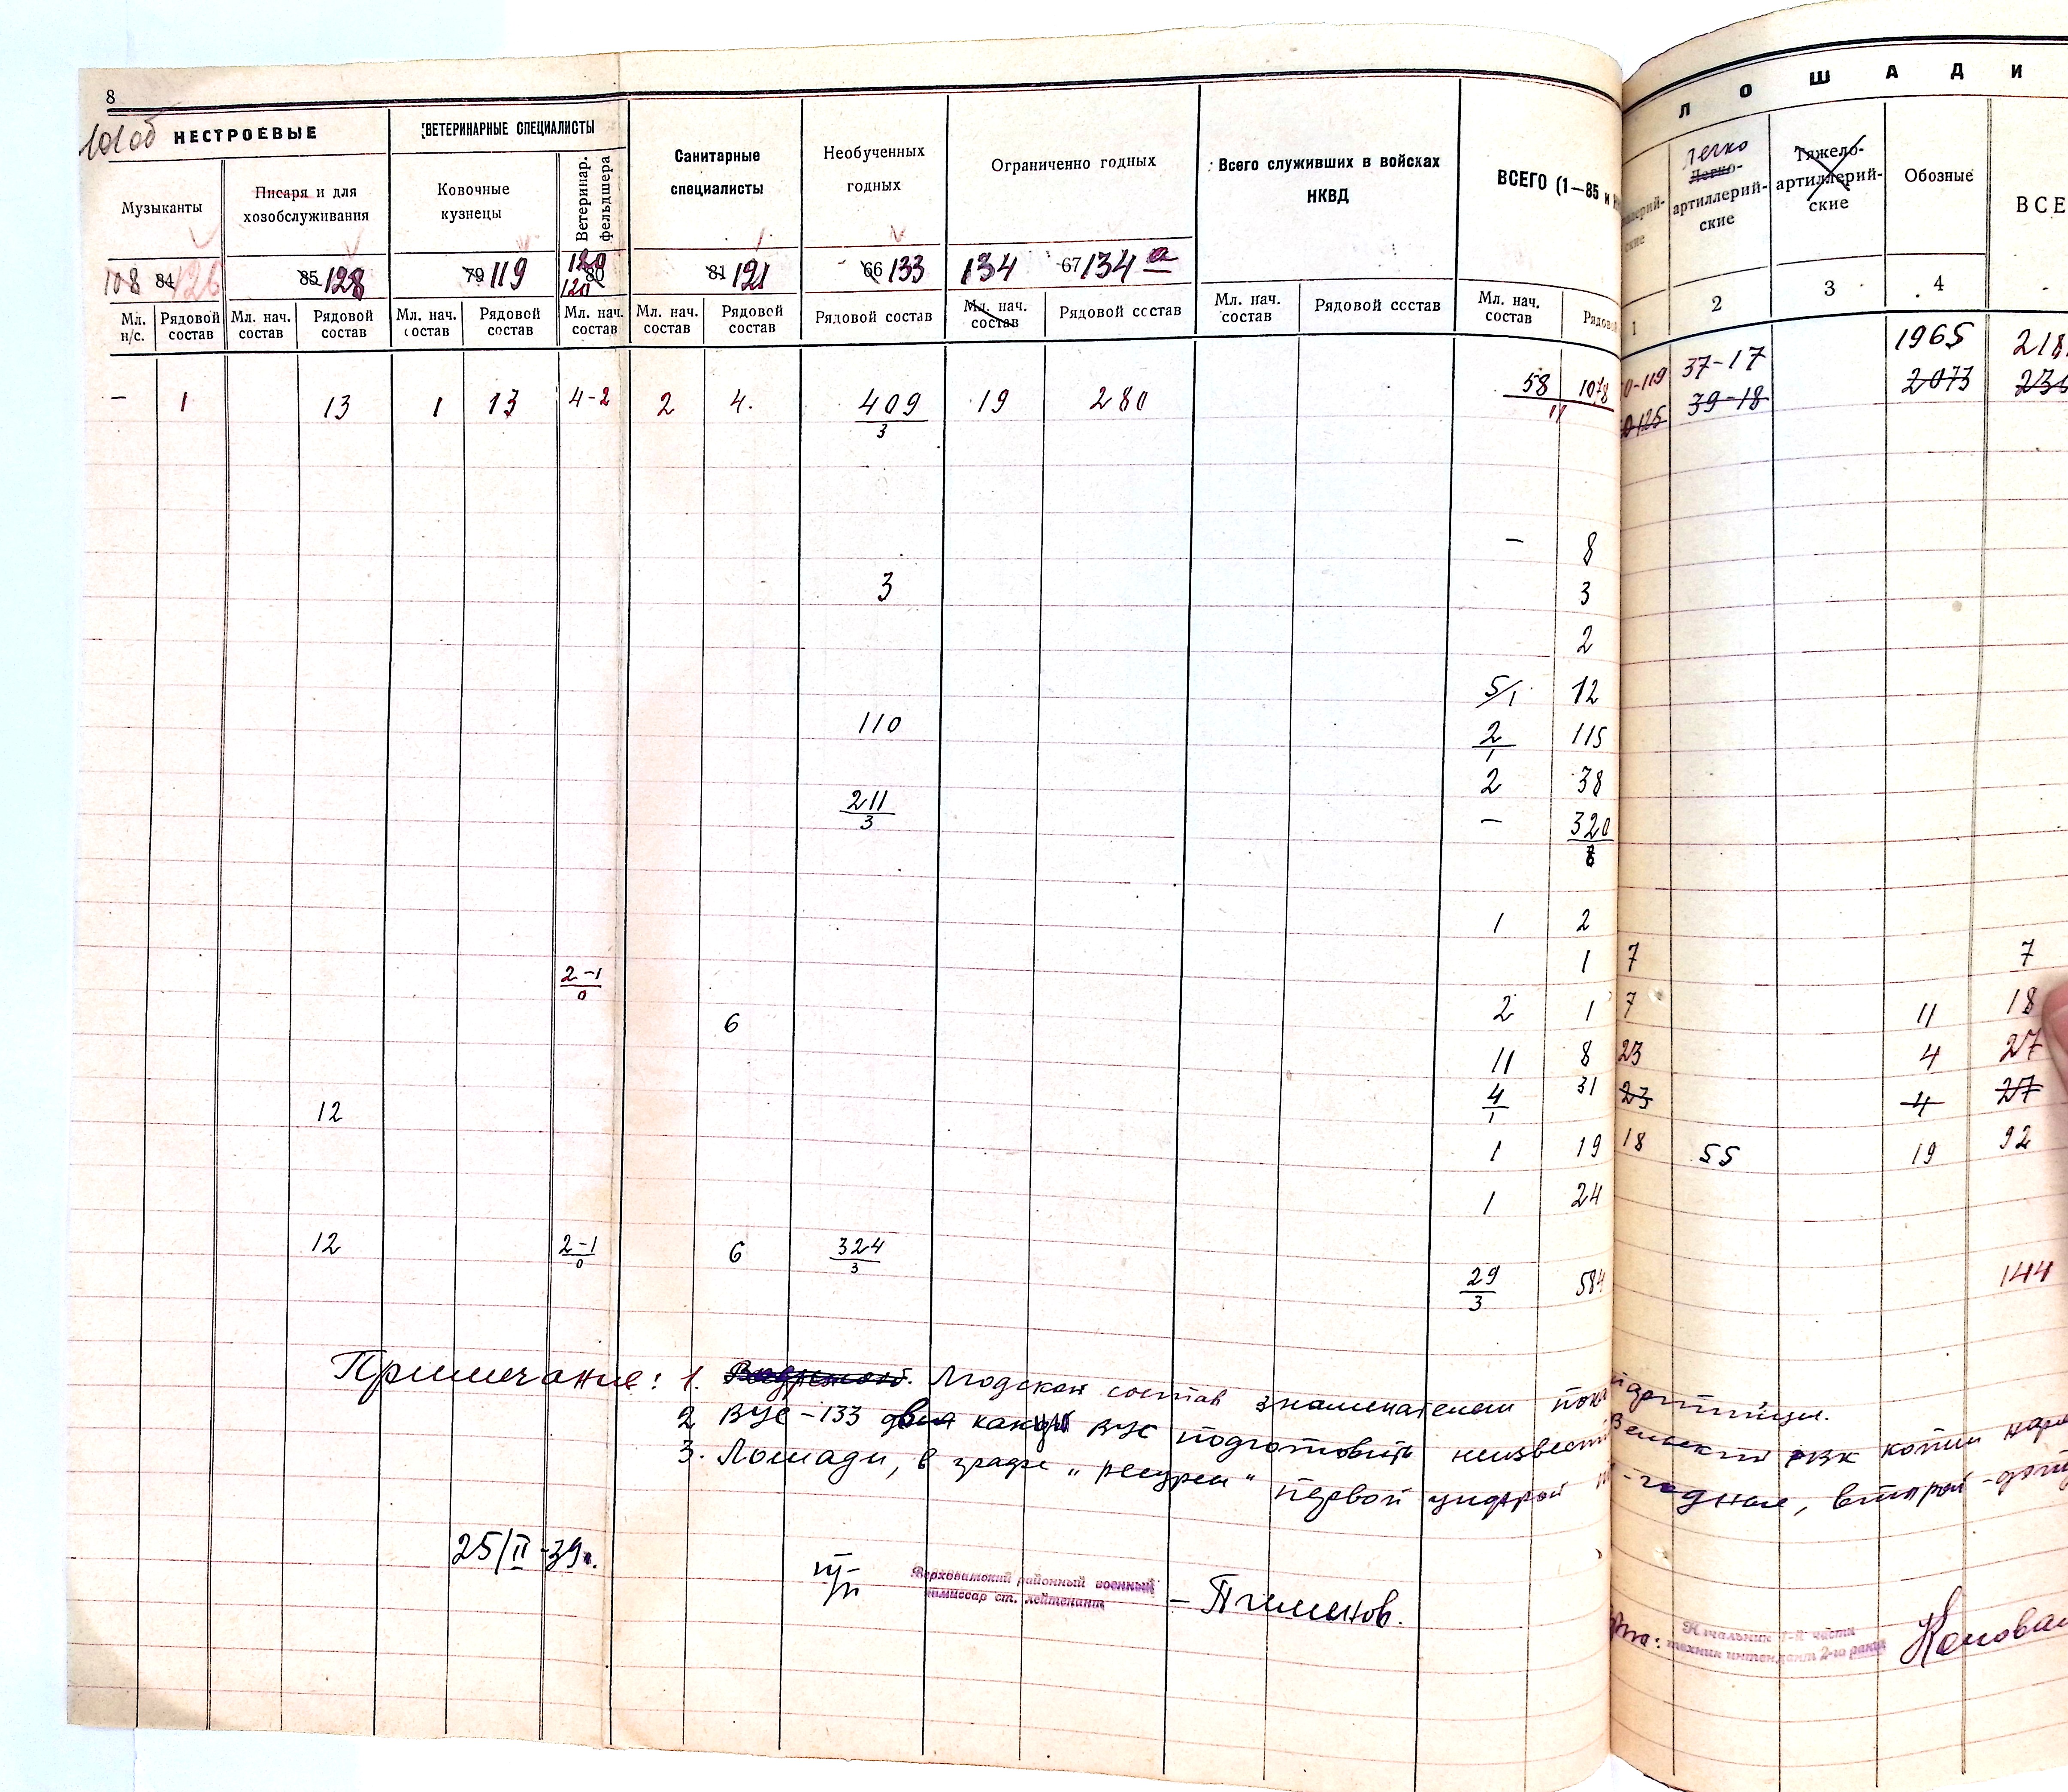 8
101 об НЕСТРОЕВЫЕ ВЕТЕРИНАРНЫЕ СПЕЦИАЛИСТЫ Санитарные специалисты Необученных годных Ограниченно годных Всего служивших в войсках НКВД ВСЕГО (1—85 и
Музыканты Писаря и для хозобслуживания Ковочные кузнецы Ветеринар. фельдшера
108 84 126 85 128 79 119 120 80 120 81 121 66 133 134 67 134 а
Мл. н/с. Рядовой состав Мл. нач. состав Рядовой состав Мл. нач. состав Рядовой состав Мл. нач. состав Мл. нач. состав Рядовой состав Рядовой состав Мл. нач. состав Рядовой состав Мл. нач. состав Рядовой состав Мл. нач. состав
– 1 13 1 13 4-2 2 4. 409 19 280 58
3
– 8
3 3
2
5/1 12
110 2/1 115
2 38
211/3 – 320
8
1 2
2-1/0 1
6 2 1
11 8
12 4/1 31
1 19
1 24
12 2-1/0 6 324/3
29/3 584
ЛОШАДИ
Легко
артиллерий-ские Тяжело-артиллерий-ские Обозные
1 2 3 4
37-17 1965
39-18 2073
7 7
7 11 18
23 4 27
23 4 27
18 55 19 92
144
Примечание: 1. Людской состав знаменателем
2 ВУС-133 каждый ВУС подготовить
3. Лошади, в графе „ресурсы" первой цифрой -годные, второй
25/II-39г.
Верховажский районный военный
комиссар ст. лейтенант – Пименов.
Начальник 1-й части
техник интендант 2-го ранга